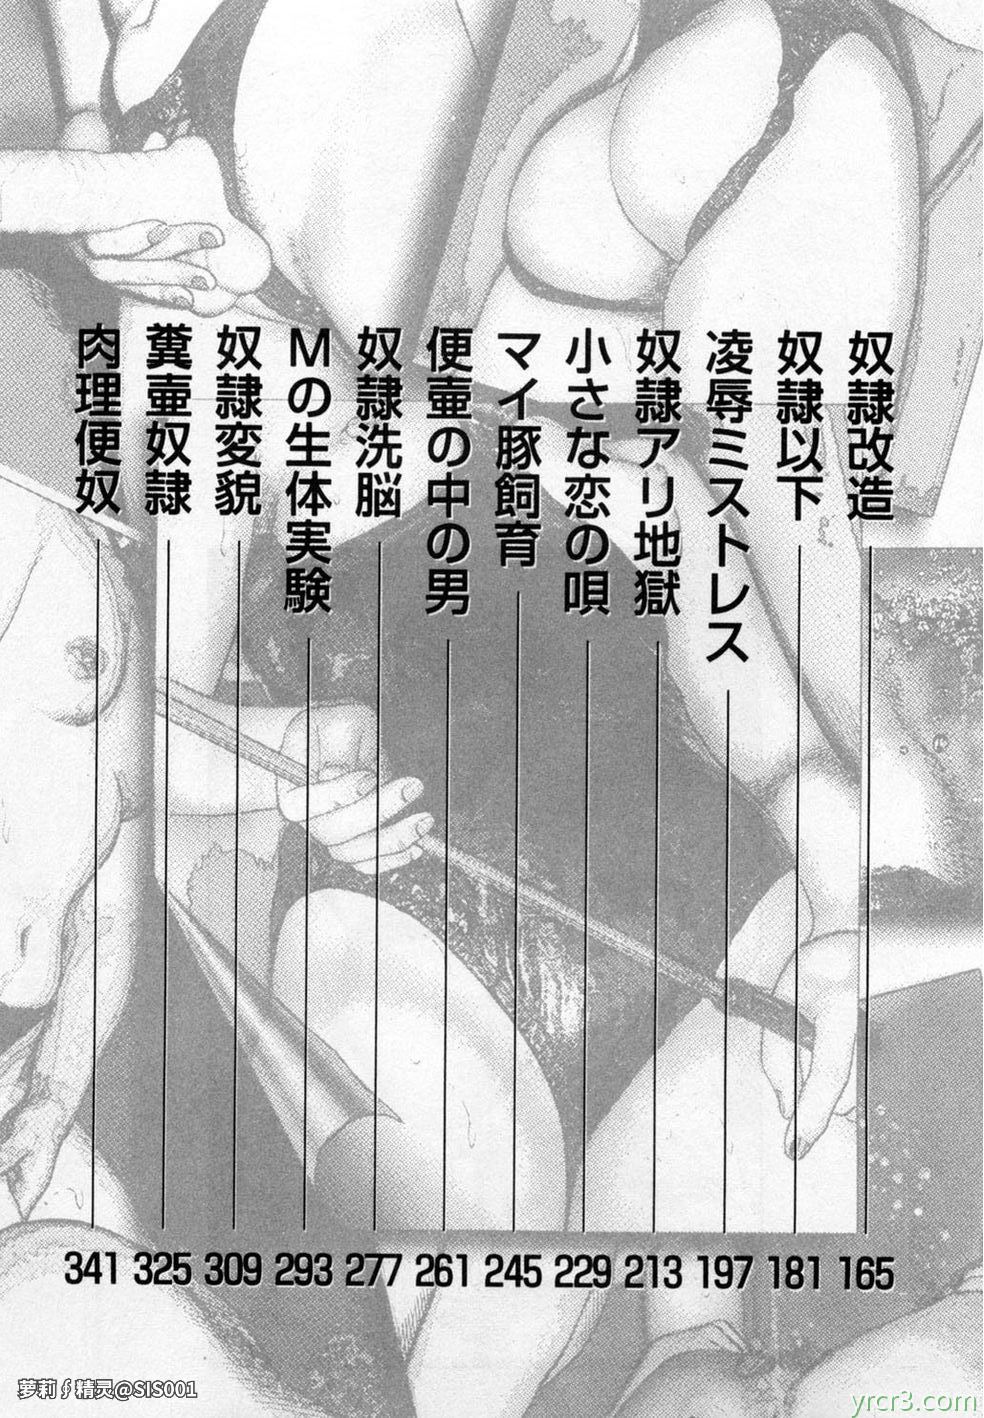 奴隷改造 165
奴隷以下 181
凌辱ミストレス 197
奴隷アリ地獄 213
小さな恋の唄 229
マイ豚飼育 245
便壷の中の男 261
奴隷洗脳 277
Mの生体実験 293
奴隷変貌 309
糞壷奴隷 325
肉理便奴 341
萝莉∮精灵@SIS001
yrcr3.com